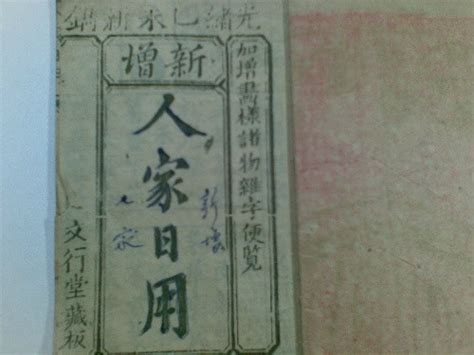 光緒乙未新鐫
新增
加增畫樣諸物雜字便覽
人家日用
文行堂藏板